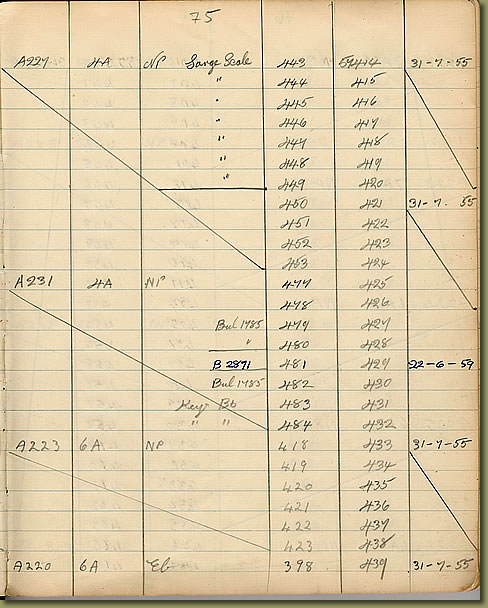 75
A227 4A NP Large Scale 443 57414 31-7-55
" 444 415
" 445 416
" 446 417
" 447 418
" 448 419
" 449 420
450 421 31-7-55
451 422
452 423
453 424
A231 4A NP 477 425
478 426
Bul 1785 479 427
" 480 428
B 2871 481 429 22-6-59
Bul 1785 482 430
Keys Bb 483 431
" " 484 432
A223 6A NP 418 433 31-7-55
419 434
420 435
421 436
422 437
423 438
A220 6A Eb 398 439 31-7-55